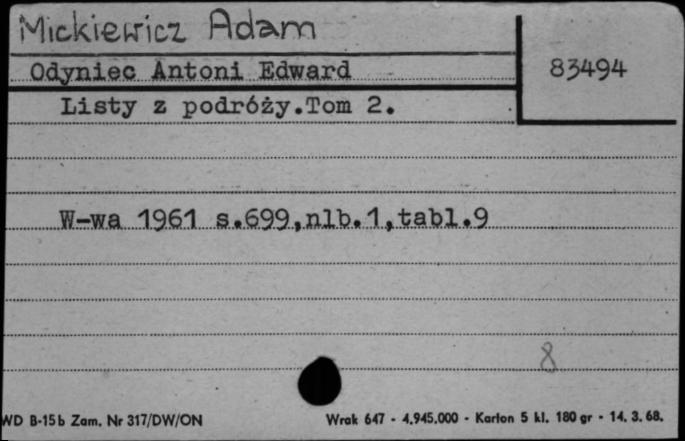 Mickiewicz Adam
Odyniec Antoni Edward
83494
Listy z podróży.Tom 2.
W-wa 1961 s.699,nlb.1,tabl.9
8
WD B-15b Zam. Nr 317/DW/ON
Wrak 647 - 4.945.000 - Karton 5 kl. 180 gr - 14. 3. 68.